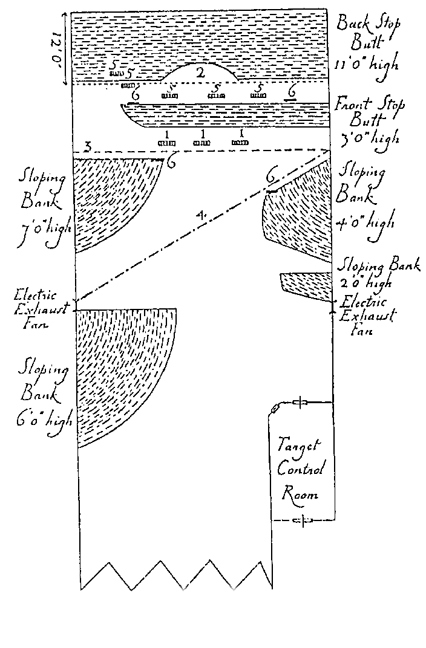 12'0"
Back Stop
Butt
11'0" high
5
5
2
6
5
5
6
Front Stop
Butt
3'0" high
1
1
1
3
6
Sloping
Bank
7'0" high
6
Sloping
Bank
4'0" high
4.
Sloping Bank
2'0" high
Electric
Exhaust
Fan
Electric
Exhaust
Fan
Sloping
Bank
6'0" high
Target
Control
Room